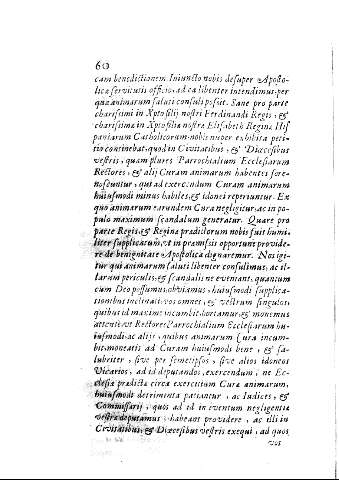 60
cam benedictionem Iniuncto nobis desuper Aposto-
licæ servitutis officio, ad ea libenter intendimus, per
quæ animarum saluti consuli possit. Sane pro parte
charissimi in Xpto filij nostri Ferdinandi Regis, &
charissimæ in Xpto filiæ nostræ Elisabeth Reginæ His
paniarum Catholicorum nobis nuper exhibita peti-
tio continebat, quod in Civitatibus, & Diœcesibus
vestris, quam plures Parrochialium Ecclesiarum
Rectores, & alij Curam animarum habentes fore-
noscuntur, qui ad exercendum Curam animarum
huiusmodi minus habiles, & idonei reperiuntur. Ex
quo animarum earundem Cura negligitur, ac in po-
pulo maximum scandalum generatur. Quare pro
parte Regis, & Reginæ prædictorum nobis fuit humi-
liter supplicatum, ut in præmissis opportune provide-
re de benignitate Apostolica dignaremur. Nos igi-
tur qui animarum saluti libenter consulimus, ac il-
larum periculis, & scandalis ne eveniant, quantum
cum Deo possumus, obviamus, huiusmodi supplica-
tionibus inclinati, vos omnes, & vestrum singulos
quibus id maxime incumbit, hortamur, & monemus
attente ut Rectores Parrochialium Ecclesiarum hu-
iusmodi ac alijs, quibus animarum Cura incum-
bit, moneatis ad Curam huiusmodi bene, & sa-
lubriter, sive per semetipsos, sive alios idoneos
Vicarios, ad id deputandos, exercendum, ne Ec-
clesia prædicta circa exercitium Curæ animarum,
huiusmodi detrimenta patiantur, ac Iudices, &
Commissarij, quos ad id in eventum negligentiæ
vestræ deputamus, habeant providere, ac illi in
Civitatibus, & Diœcesibus vestris exequi, ad quos
vos